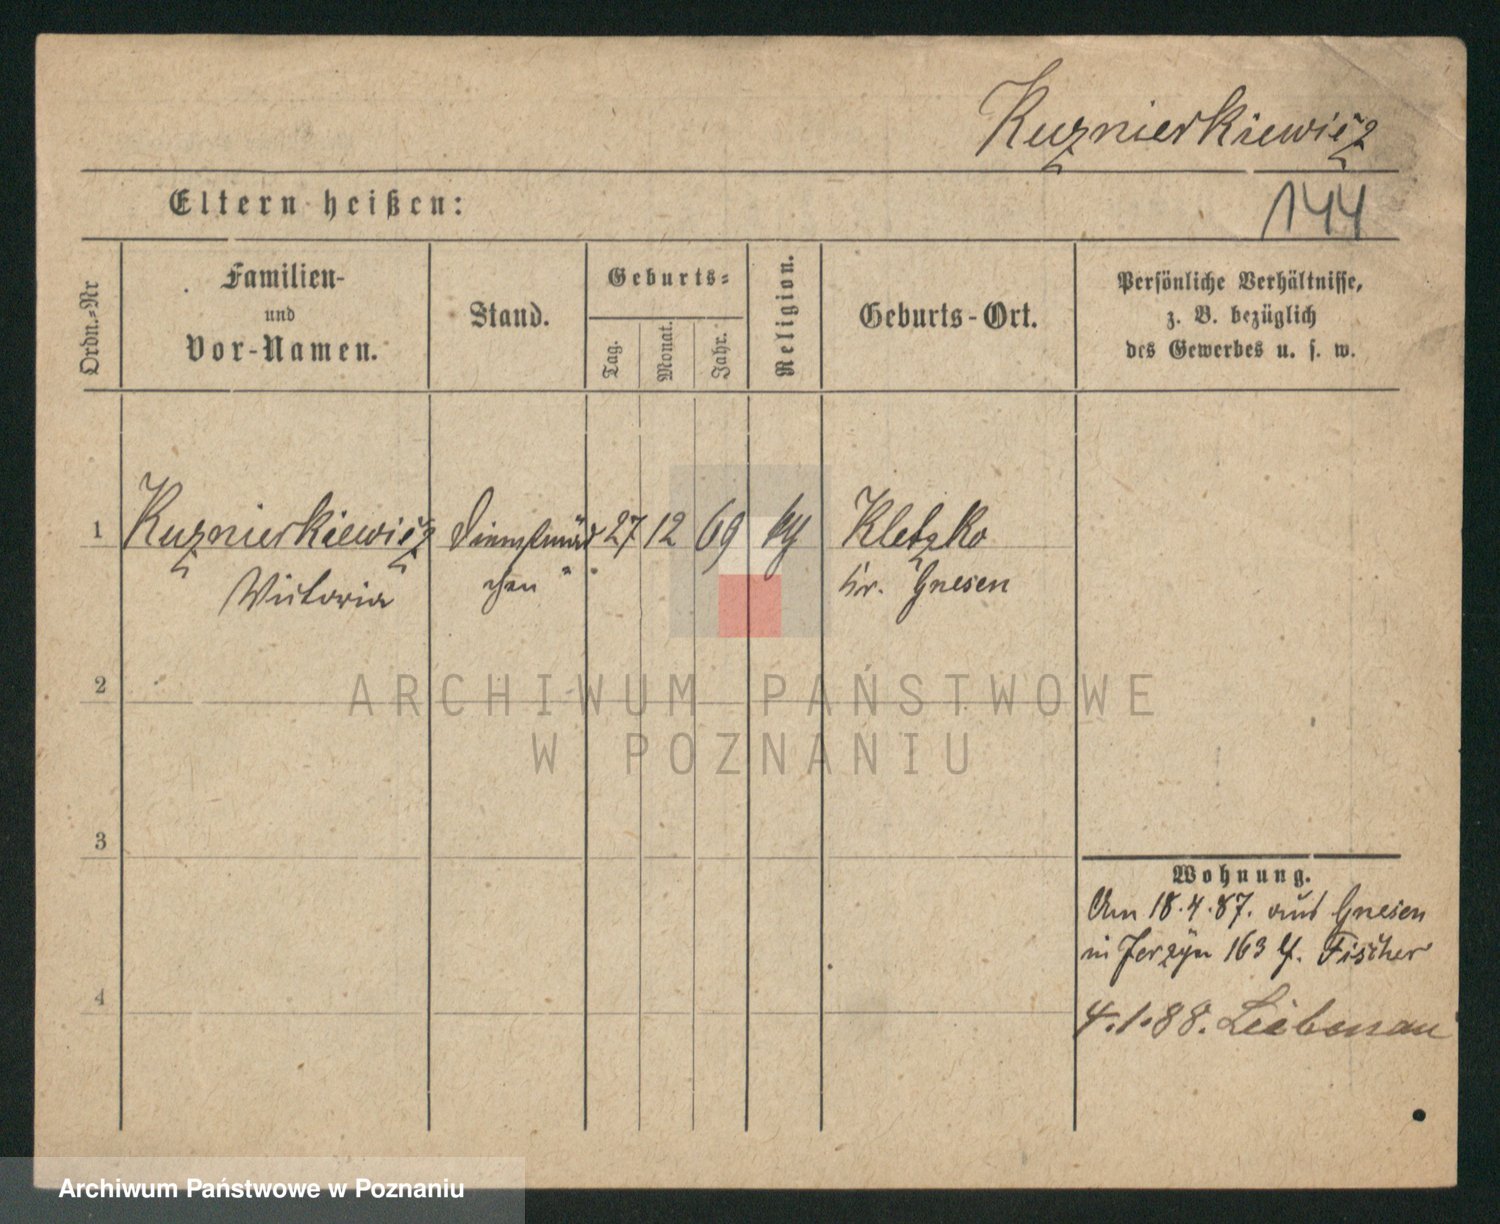 Kuznierkiewicz
144
Eltern heißen:
Ordn.-Nr
Familien-
und
Vor-Namen.
Stand.
Geburts-
Tag.
Monat.
Jahr.
Religion.
Geburts-Ort.
Persönliche Verhältnisse,
z. B. bezüglich
des Gewerbes u. s. w.
1 Kuznierkiewicz Dienstmäd 27 12 69 Kletzko
Victoria chen Kr. Gnesen
2
3
4
Wohnung.
Am 18.4.87. aus Gnesen
in Jerzyn 163 Fischer
4.1.88. Liebenau
ARCHIWUM PAŃSTWOWE
W POZNANIU
Archiwum Państwowe w Poznaniu